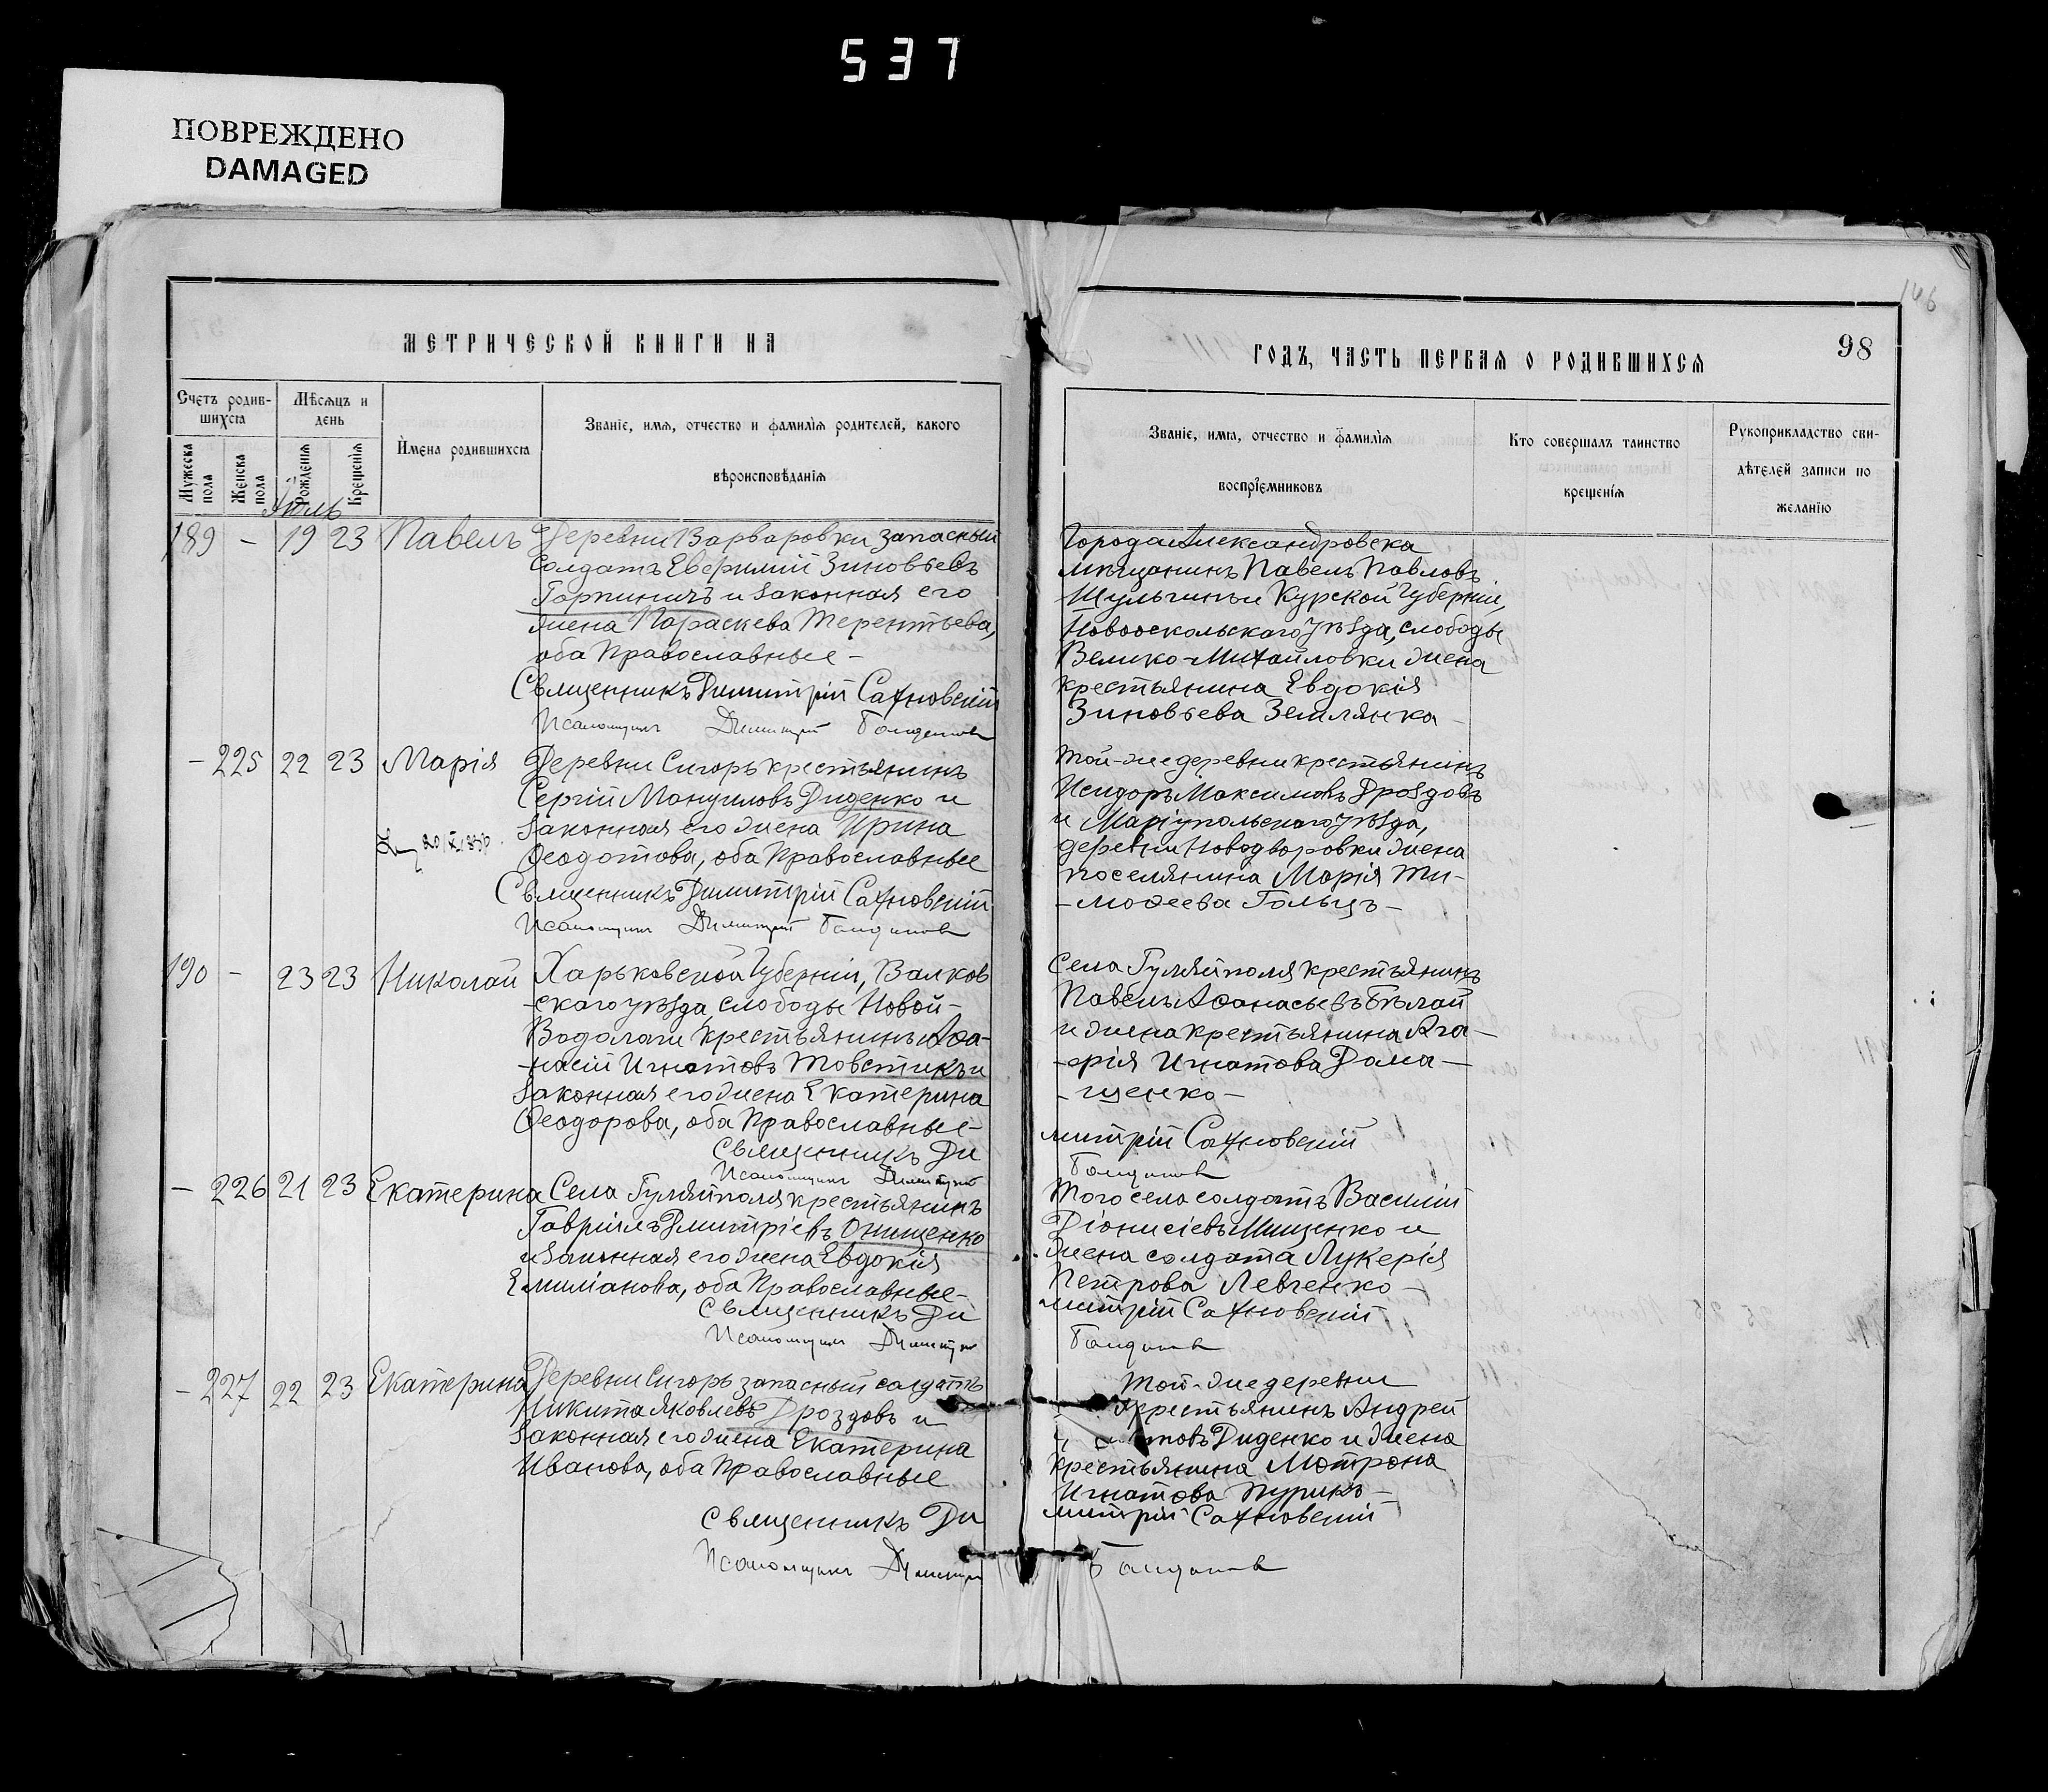 537
ПОВРЕЖДЕНО
DAMAGED
146
МЕТРИЧЕСКОЙ КНИГИ НА
ГОДЪ, ЧАСТЬ ПЕРВАЯ О РОДИВШИХСЯ
98
Счетъ родив-
шихся
Мѣсяцъ и
день
Мужеска
пола
Женска
пола
Рожденія
Крещенія
Имена родившихся
Званіе, имя, отчество и фамилія родителей, какого
вѣроисповѣданія
Званіе, имя, отчество и фамилія
воспріемниковъ
Кто совершалъ таинство
крещенія
Рукоприкладство сви-
дѣтелей записи по
желанію
Июль
189 - 19 23 Павелъ
Деревни Варваровки запасный
солдатъ Евфимій Зиновьевъ
Горпиничъ и законная его
жена Параскева Терентьева,
оба Православные -
Священникъ Димитрій Сахновскій
Псаломщикъ Димитрій
Города Александровска
мѣщанинъ Павелъ Павловъ
Шульгинъ и Курской Губерніи,
Новооскольскаго уѣзда, слободы
Велико-Михайловки жена
крестьянина Евдокія
Зиновьева Землянка -
- 225 22 23 Марія
Деревни Сигоръ крестьянинъ
Сергій Мануиловъ Диденко и
законная его жена Ирина
Ѳеодотова, оба Православные
Священникъ Димитрій Сахновскій
Псаломщикъ Димитрій
Той-же деревни крестьянинъ
Исидоръ Максимовъ Дроздовъ
и Маріупольскаго уѣзда,
деревни Новодворовки жена
поселянина Марія Ти-
-моѳеева Гольцъ -
190 - 23 23 Николай
Харьковской Губерніи, Валков
-скаго уѣзда, слободы Новой-
Водолаги крестьянинъ Аѳа-
-насій Игнатовъ Товстикъ и
законная его жена Екатерина
Ѳеодорова, оба Православные -
Священникъ Ди
Псаломщикъ Димитрій
Села Гуляйполя крестьянинъ
Павелъ Аѳанасьевъ Бѣлай
и жена крестьянина Ага-
-ѳрія Игнатова Дома-
-щенко -
митрій Сахновскій
- 226 21 23 Екатерина
Села Гуляйполя крестьянинъ
Гавріилъ Дмитріевъ Онищенко
и законная его жена Евдокія
Емиліанова, оба Православные -
Священникъ Ди
Псаломщикъ Димитрій
Того села солдатъ Василій
Діонисіевъ Мищенко и
жена солдата Лукерія
Петрова Левченко -
митрій Сахновскій
- 227 22 23 Екатерина
Деревни Сигоръ запасный солдатъ
Никита Яковлевъ Дроздовъ и
законная его жена Екатерина
Иванова, оба Православные
Священникъ Ди
Псаломщикъ Димитрій
Той-же деревни
крестьянинъ Андрей
Диденко и жена
крестьянина Мотрона
Игнатова Пурикъ -
митрій Сахновскій